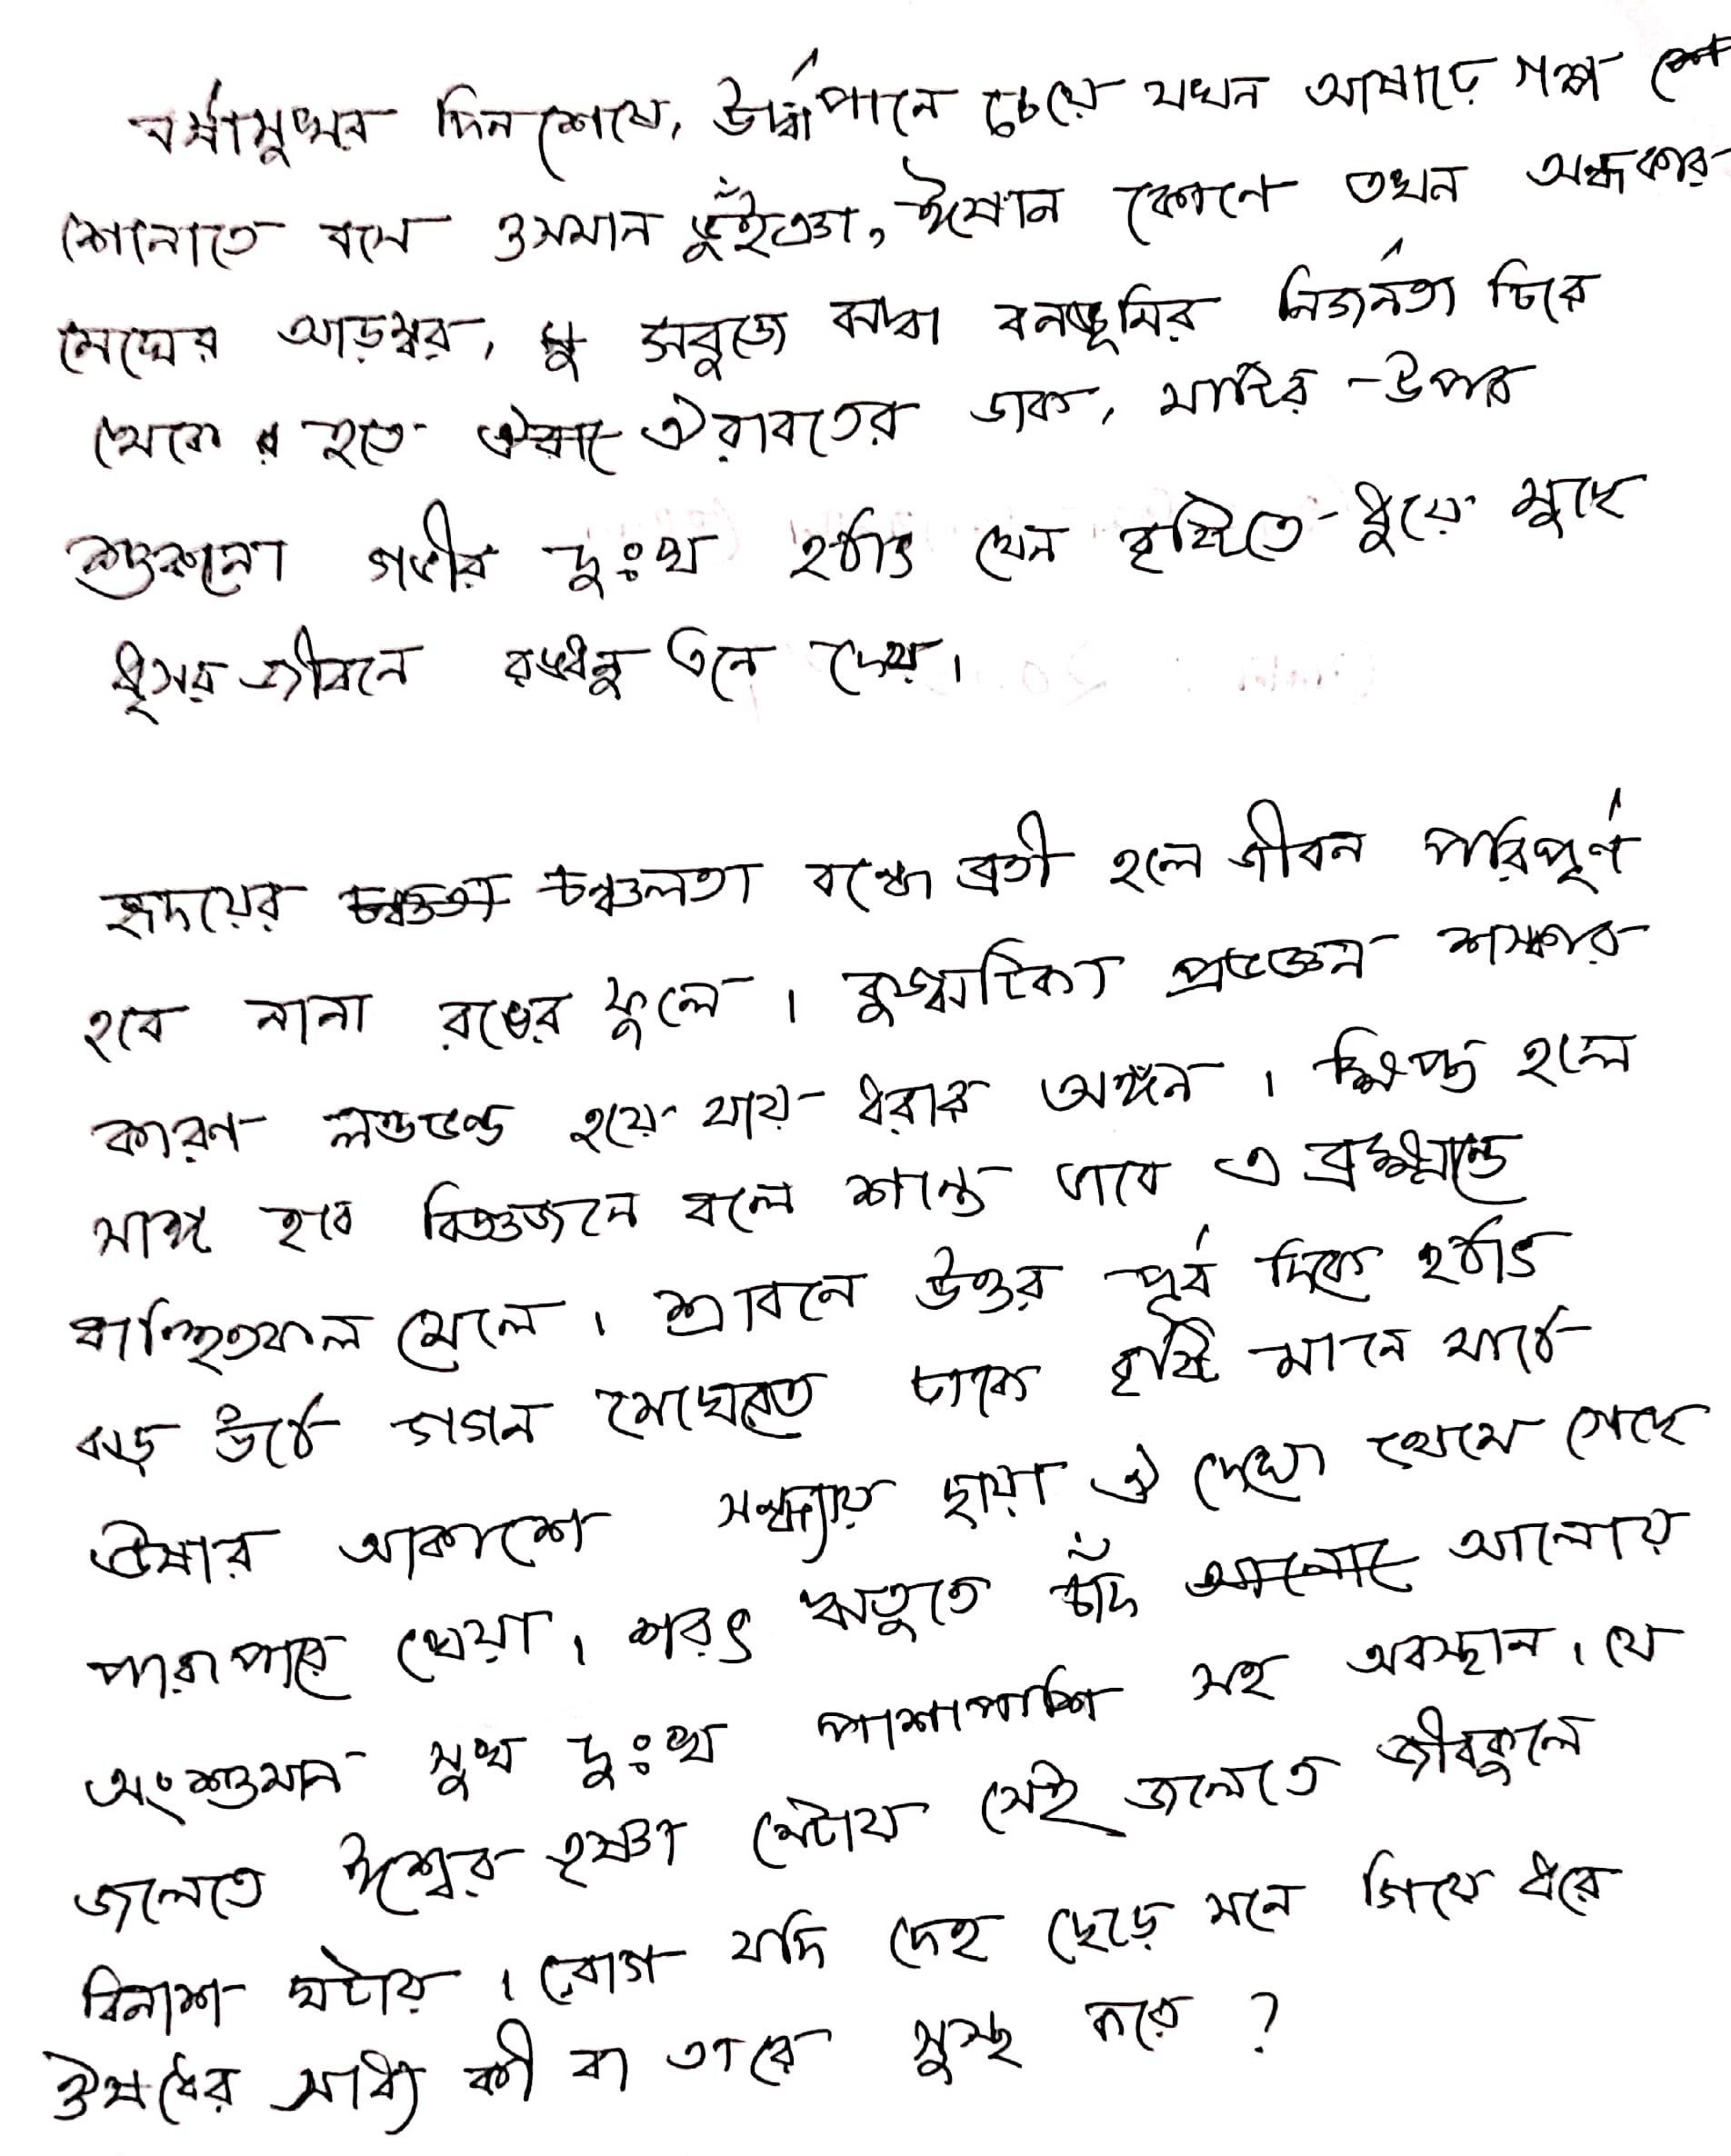 বর্ষামুখর দিনশেষে, উর্দ্ধপানে চেয়ে যখন আষাঢ়ে গল্প
শোনাতে বসে ওসমান ভুঁইঞা, ঈষান কোণে তখন অন্ধকার
মেঘের আড়ম্বর, সবুজে ঘেরা বনভূমির নির্জনতা চিরে
থেকে হতে ঐরাবতের ডাক, মাটির উপর
শুকানো গভীর দুঃখ হঠাৎ যেন বৃষ্টিতে ধুয়ে মুছে
ধূসর জীবনে রঙধনু এনে দেয়।
হৃদয়ের চঞ্চলতা বন্ধে ব্রতী হলে জীবন পরিপূর্ণ
হবে নানা রঙের ফুলে। কুজ্ঝটিকা প্রভঞ্জন শঙ্কার
কারণ লন্ডভন্ড হয়ে যায় ধরার অঙ্গন। ক্ষিপ্ত হলে
সাঙ্গ হবে বিজ্ঞজনে বলে শান্ত হবে এ ব্রহ্মান্ডে
বাঞ্ছিতফল মেলে। শ্রাবনে উত্তর পূর্ব দিকে হঠাৎ
ঝড় উঠে গগন মেঘেতে ঢাকে বৃষ্টি মানে মাঠে
উষার আকাশে সন্ধ্যায় ছায়া ঐ দেখা থেমে গেছে
পারাপারে খেয়া। শরৎ ঋতুতে চাঁদ আলোয়
অংশুমান সুখ দুঃখ পাশাপাশি সহ অবস্থান। যে
জলেতে ঈশ্বর তৃষ্ণা মেটায় সেই জলেতে জীবকুলে
বিনাশ ঘটায়। রোগ যদি দেহ ছেড়ে মনে গিয়ে ধরে
ঔষধের সাধ্য কী বা তারে সুস্থ করে?